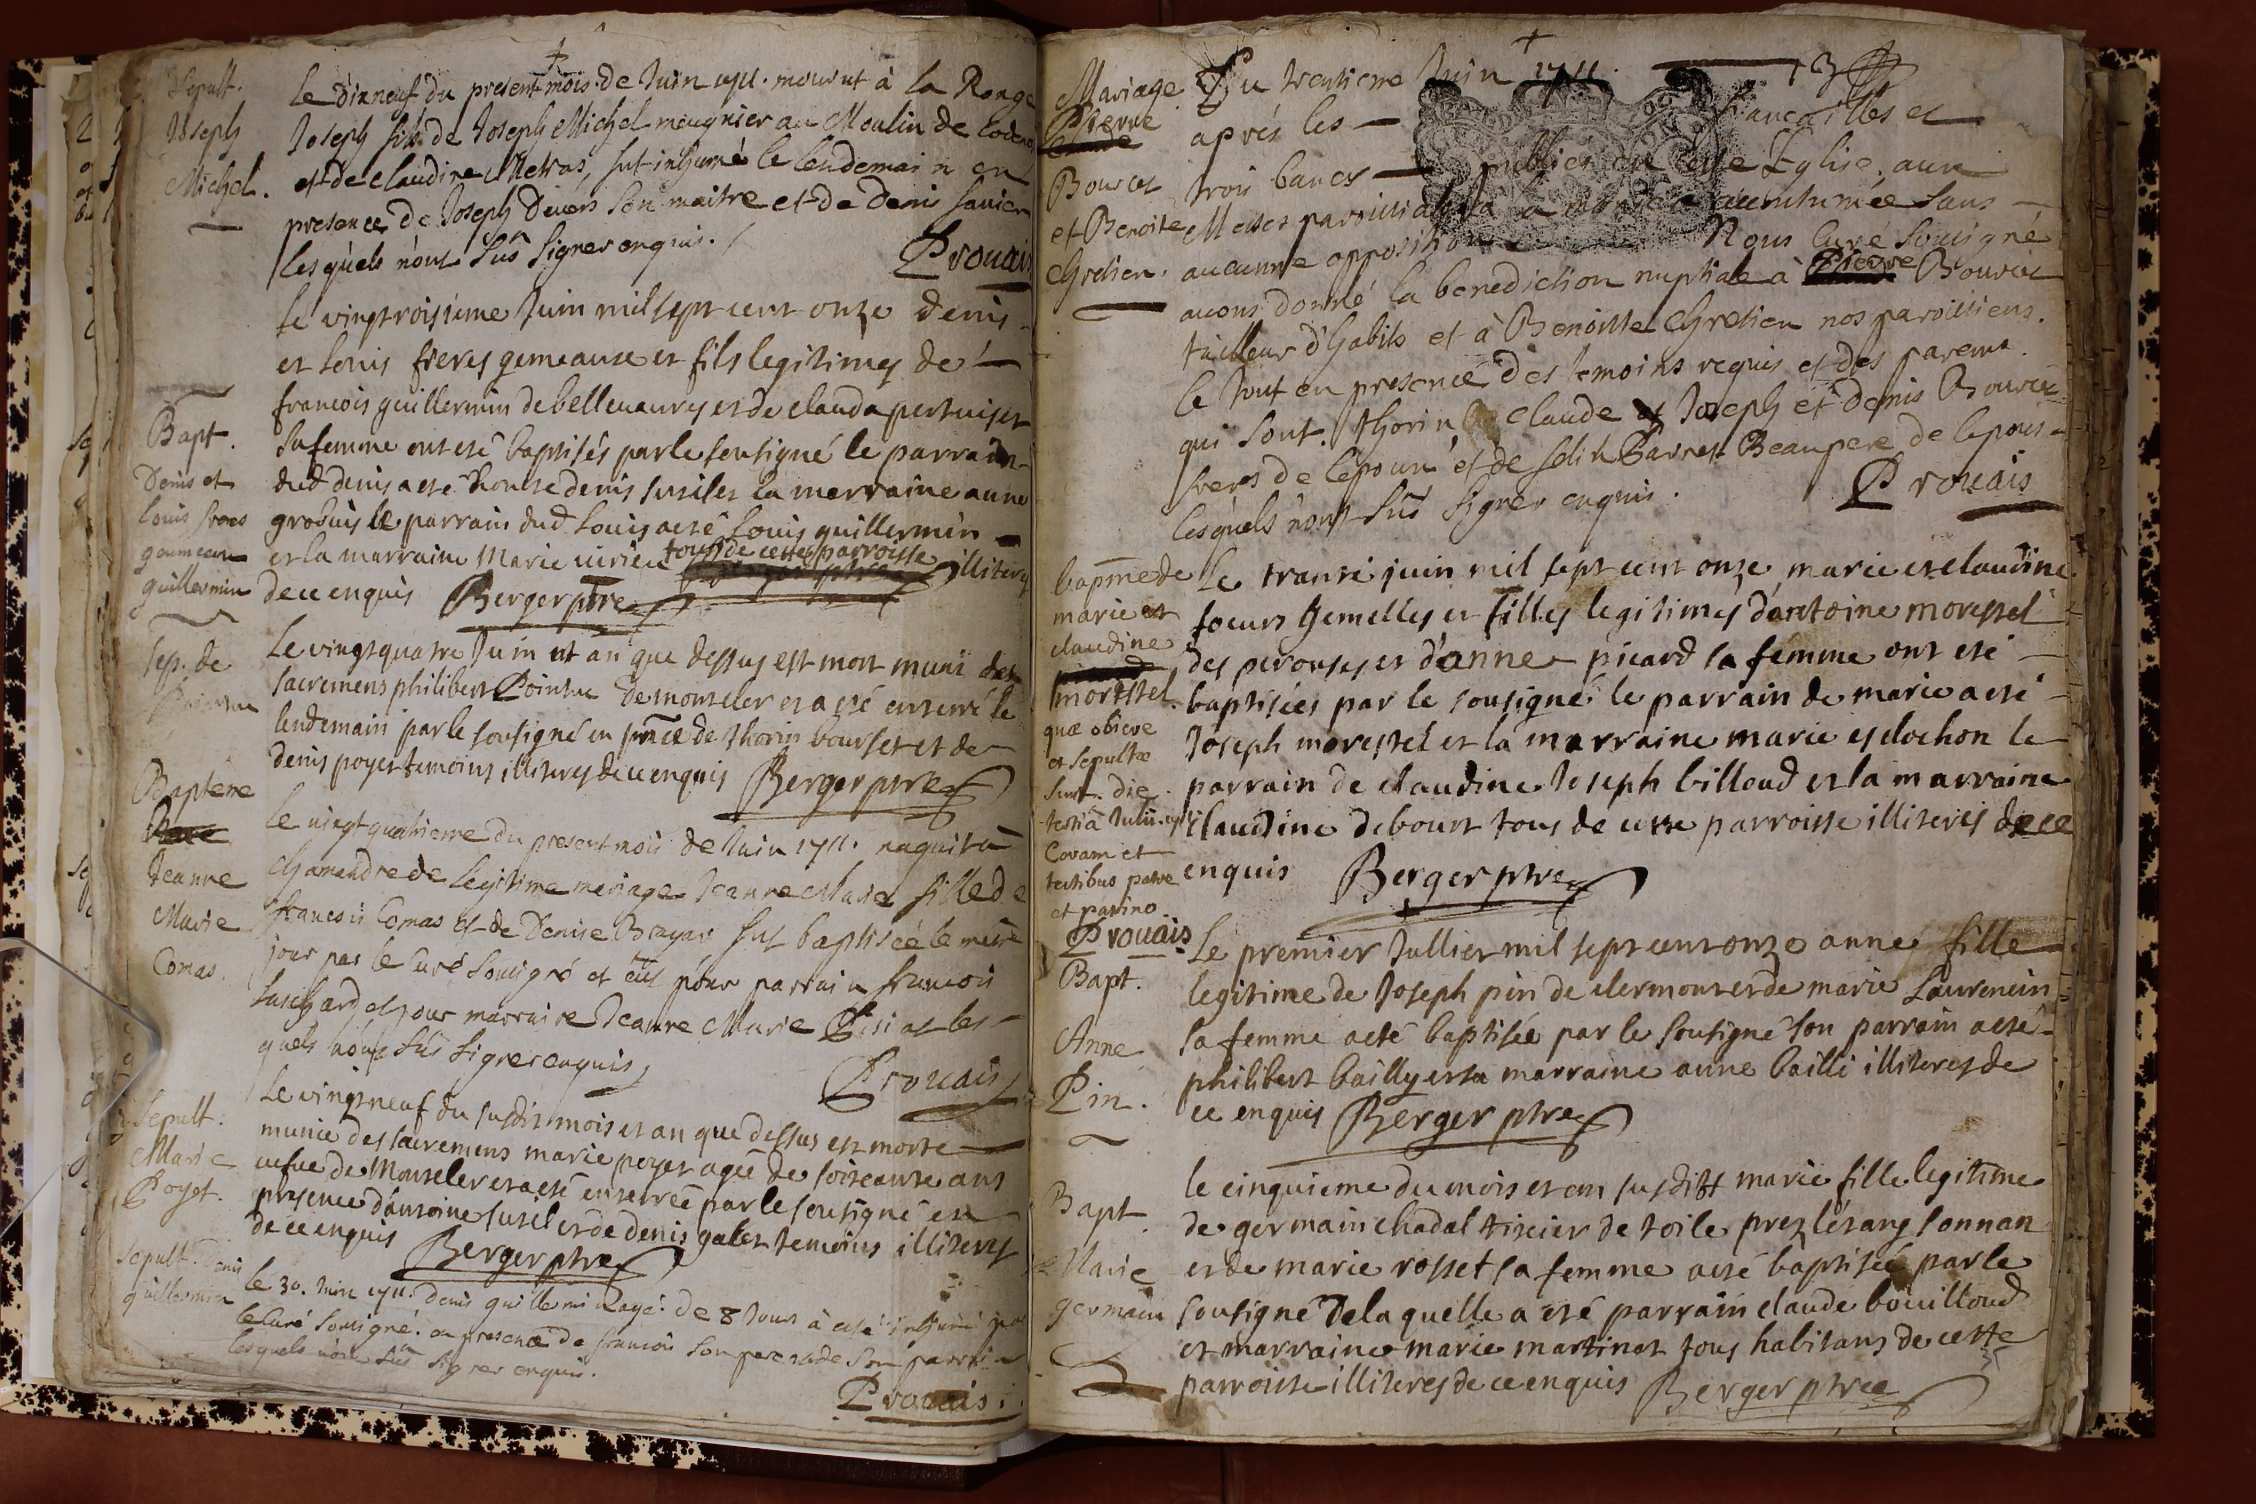 Sepult.
Joseph
Michel.
le dixneuf du present mois de Juin 1711. mourut à la Ronge
Joseph fils de Joseph Michel meugnier au Moulin de
et de claudine Metras, fut inhumé le lendemain en
presence de Joseph Devers son maitre et de Denis
lesquels n'ont sûs signer enquis.
Prouais
Bapt.
Denis et
louis freres
gemeaux
guillermin
le vingtroisieme Juin mil sept cent onze denis
et louis freres gemeaux et fils legitimes de
francois guillermin de bellevaury et de clauda pertuiset
sa femme ont eté baptisés par le sousigné le parrain
dud denis a eté denis la marraine anne
grobuis le parrain dud Louis a eté Louis guillermin
et la marraine Marie virieu tous de cette parroisse illiterés
de ce enquis Berger ptre
Sep. de
Pointue
Le vingt quatre Juin et an que dessus est mort muni des
sacremens philibert Pointue de montceler et a eté enterré le
lendemain par le sousigné en pnce de thorin bourset et de
denis poyet temoins illiterés de ce enquis Berger ptre
Baptême
Jeanne
Marie
Comas.
le vingt quatrieme du present mois de Juin 1711. naquit à
Chamendre de legitime mariage Jeanne Marie fille de
francois Comas et de Denise Brayar fut baptisée le même
jour par le Curé sousigné et eut pour parrain francois
et pour marraine Jeanne Marie les-
quels n'ont sûs signer enquis
Prouais
Sepult.
Marie
Poyet.
Le vingt neuf du susdit mois et an que dessus est morte
munie des sacremens marie poyet agée de soixante ans
vefve de Monteler et a eté enterrée par le sousigné en
presence d'antoine susil et de denis galet temoins illiterés
de ce enquis Berger ptre
Sepult. Denis
guillermin
le 30. Juin 1711. denis guillermin agé de 8 jours à eté inhumé par
le Curé sousigné en presence de francois son pere et de son parrain
lesquels n'ont sûs signer enquis.
Prouais.
Mariage
Pierre
Bourcet
et Benoite
Chretien.
13
Du trentieme Juin 1711.
aprés les fiancailles et
trois bancs publiez en cette Eglise, aux
Messes parroissiales à la maniere accoutumée sans
aucunne opposition Nous Curé sousigné
avons donné la benediction nuptiale à Pierre Bourcet
tailleur d'habits et à Benoitte Chretien nos paroissiens.
le tout en presence des temoins requis et des parents.
qui sont. thorin claude et Joseph et denis Bourcet
freres de lepoux et de Barnet Beaupere de lepous-
lesquels n'ont sûs signer enquis.
Prouais
bapme de
marie et
claudine
morestel
quæ obiere
et sepultæ
sunt die
tertiâ Julii
Coram et
testibus patre
et patrino
Prouais
Le trante juin mil sept cent onze marie et claudine
soeurs gemelles et filles legitimes d'antoine morestel
des perouses et d'anne picard sa femme ont eté
baptisées par le sousigné le parrain de marie a eté
Joseph morestel et la marraine marie esclochon le
parrain de claudine Joseph billoud et la marraine
claudine debourt tous de cette parroisse illiterés de ce
enquis Berger ptre
Bapt.
Anne
Pin.
Le premier Jullier mil sept cent onze anne fille
legitime de Joseph pin de clermont et de marie Laurencin
sa femme a eté baptisée par le sousigné son parrain a eté
philibert bailly et sa marraine anne bailli illiterés de
ce enquis Berger ptre
Bapt
Marie
germain
le cinquieme du mois et an susditt marie fille legitime
de germain chadal tixier de toile prez létang sonnan
et de marie rosset sa femme a eté baptisée par le
sousigné de laquelle a eté parrain claude bouilloud
et marraine marie martinet tous habitans de cette
parroisse illiterés de ce enquis Berger ptre